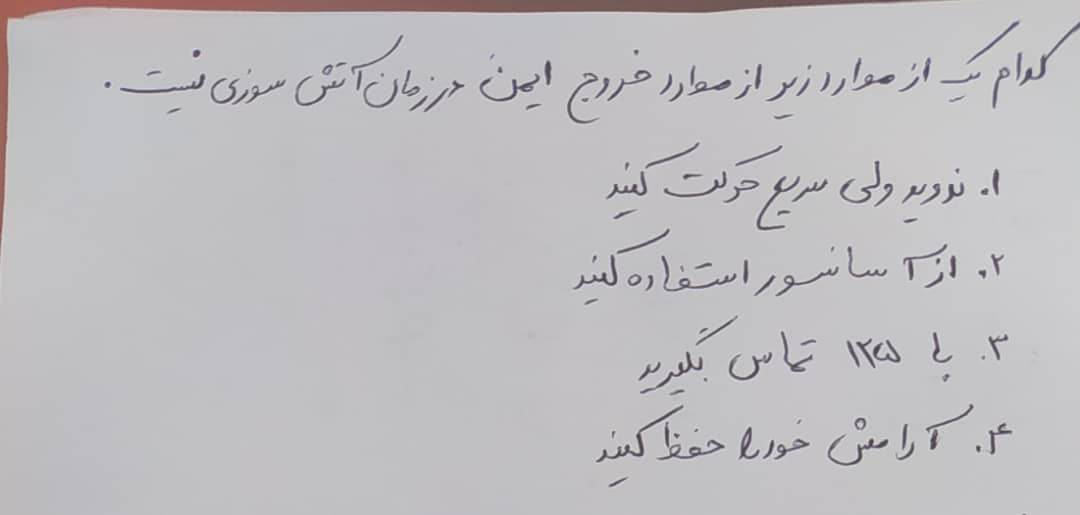 کدام یک از موارد زیر از موارد خروج ایمن در زمان آتش سوزی نیست.
۱. ندوید ولی سریع حرکت کنید
۲. از آسانسور استفاده کنید
۳. با ۱۲۵ تماس بگیرید
۴. آرامش خود را حفظ کنید